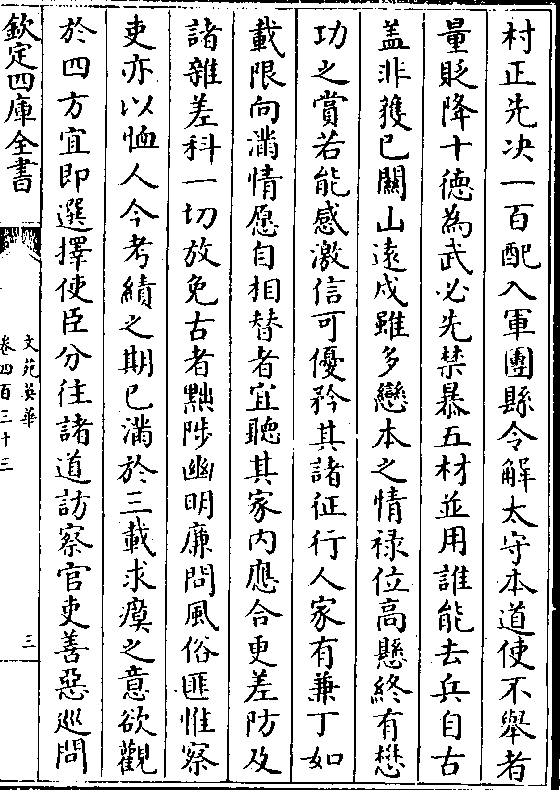 村正先决一百配入軍團縣令解太守本道使不舉者
量貶降十德為武必先禁暴五材並用誰能去兵自古
盖非獲已關山遠戍雖多戀本之情禄位高懸終有懋
功之賞若能感激信可優矜其諸征行人家有兼丁如
載限向滿情愿自相替者宜聽其家内應合更差防及
諸雜差科一切放免古者黜陟幽明廉問風俗匪惟察
吏亦以恤人今考績之期已滿於三載求瘼之意欲觀
於四方宜即選擇使臣分往諸道訪察官吏善惡巡問
欽定四庫全書
文苑英華
卷四百三十三
三